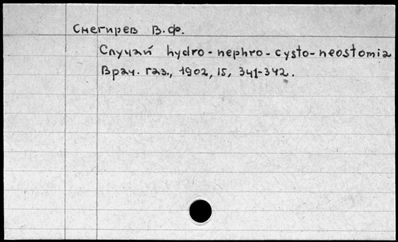 Снегирев В.Ф.
Случай hydro-nephro-cysto-neostomia
Врач. газ., 1902, 15, 341-342.